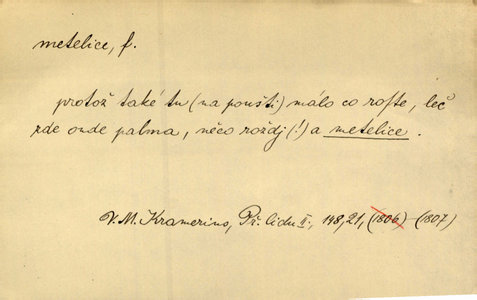 metelice, f.
protož také tu (na poušti) málo co rofte, leč
zde onde palma, něco roždj (!) a metelice.
V. M. Kramerius, Př. lidu II., 148, 21, (1806) (1807)